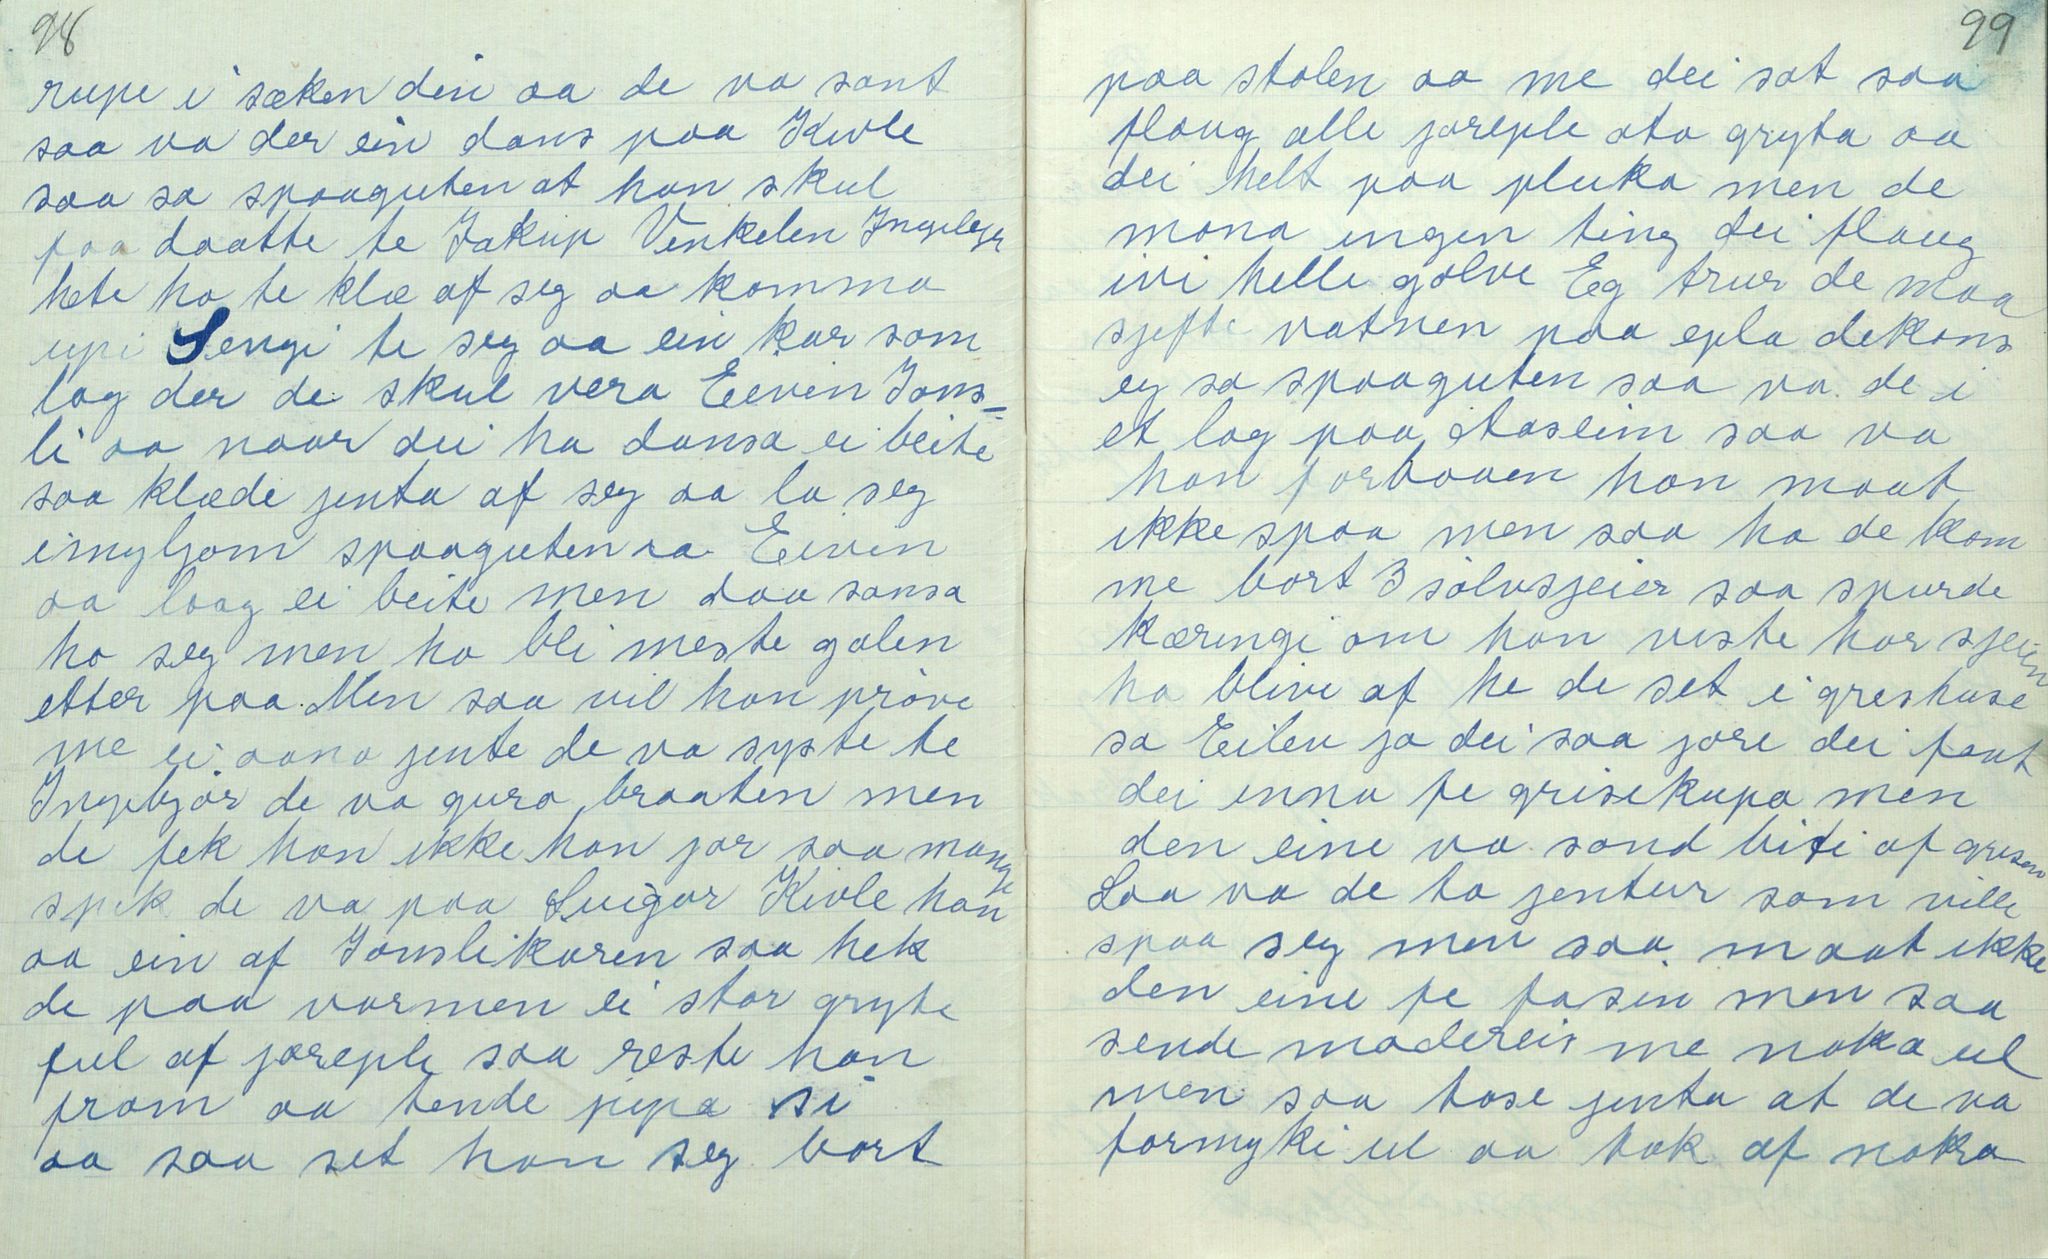 98
rupe i sæken din aa de va sant
saa va der ein dans paa Kivle
saa sa spaaguten at han skul
faa daatte te Jakup Vinkelen Ingebjør
hete ho te klæ af seg aa komma
upi Sengi te seg aa ein kar som
lag der de skul vera Eeven Jons=
li aa naar dei ha dansa ei beite
saa klæde jenta af seg aa la seg
imyljom spaaguten aa Eiven
aa laag ei beite men daa sansa
ho seg men ho bli meste galen
etter paa. Men saa vil han prøve
me ei aana jente de va syste te
Ingebjør de va guro braaten men
de fek han ikke han jor saa mange
spik de va paa Luigar Kivle han
aa ein af Jonslikaren saa hek
de paa varmen ei stor gryte
ful af joreple saa reste han
fram aa tende pipa si
aa saa set han seg bort
99
paa stolen aa me dei sat saa
floug alle joreple ato gryta aa
dei helt paa pluka men de
mona ingen ting dei floug
ivi helle golve Eg trur de maa
sjefte vatnen paa epla dekans
eg sa spaaguten saa va de i
et lag paa Aaseim saa va
han forbaaen han maat
ikke spaa men saa ha de kom
me bort 3 sølvsjeier saa spurde
kæringi om han viste hor sjein
ha blive af he de set i greshuse
sa Eilev ja dei saa jore dei fant
dei inna fe grisekupa men
den eine va sond biti af grisen
Saa va de to jentur som ville
spaa seg men saa maat ikke
den eine fe fasin men saa
sende modereis me noka ul
men saa tose jenta at de va
formyki ul aa tok af nokra